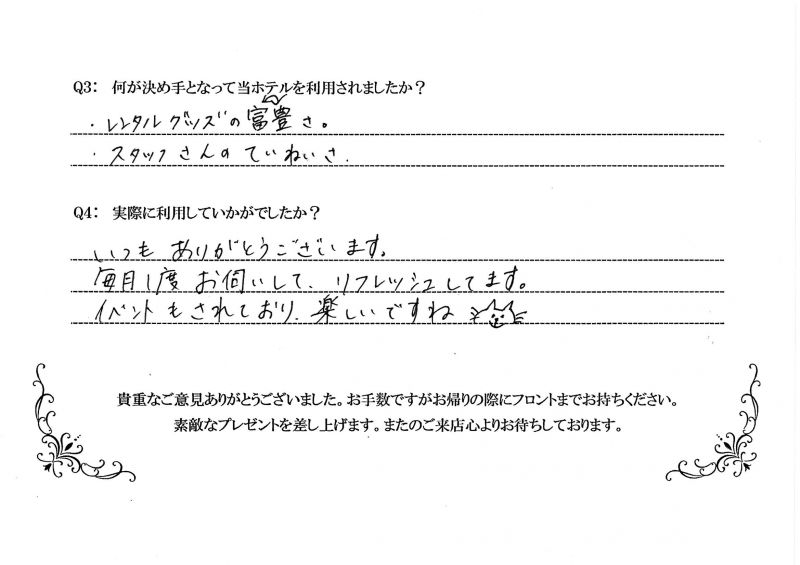 Q3: 何が決め手となって当ホテルを利用されましたか？
・レンタルグッズの豊富さ。
・スタッフさんのていねいさ.
Q4: 実際に利用していかがでしたか？
いつもありがとうございます。
毎月1度お伺いして、リフレッシュしてます。
イベントもされており、楽しいですね
貴重なご意見ありがとうございました。お手数ですがお帰りの際にフロントまでお持ちください。
素敵なプレゼントを差し上げます。またのご来店心よりお待ちしております。